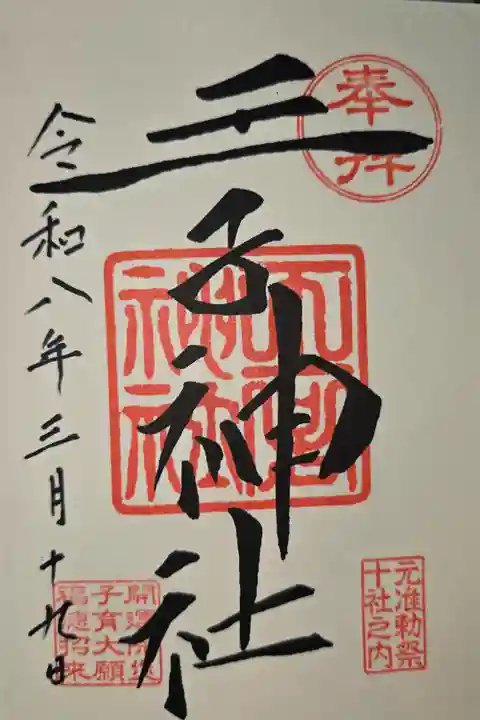 奉拝
王子神社
元准勅祭
十社之内
令和八年三月十九日
開運除災
子育大願
福徳招来